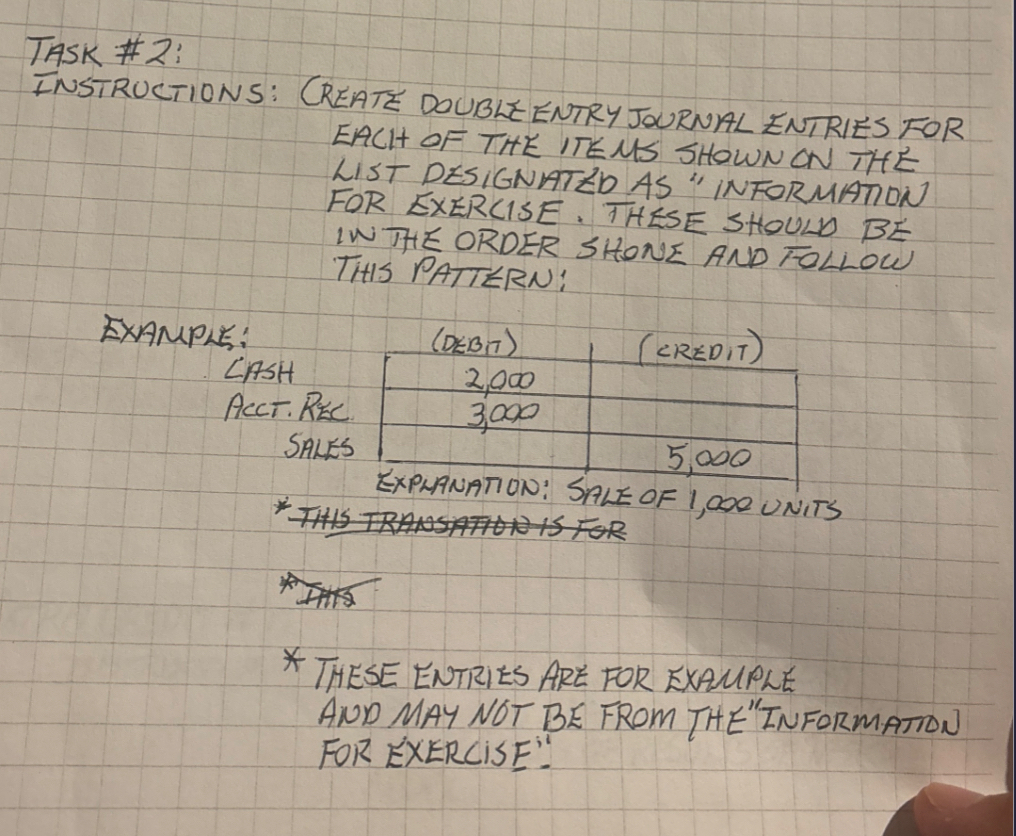 TASK #2:
INSTRUCTIONS: CREATE DOUBLE ENTRY JOURNAL ENTRIES FOR
EACH OF THE ITEMS SHOWN ON THE
LIST DESIGNATED AS "INFORMATION
FOR EXERCISE. THESE SHOULD BE
IN THE ORDER SHONE AND FOLLOW
THIS PATTERN:
EXAMPLE:
(DEBIT) (CREDIT)
CASH 2,000
ACCT. REC 3,000
SALES 5,000
EXPLANATION: SALE OF 1,000 UNITS
* THIS TRANSATION IS FOR
* THIS
* THESE ENTRIES ARE FOR EXAMPLE
AND MAY NOT BE FROM THE "INFORMATION
FOR EXERCISE"